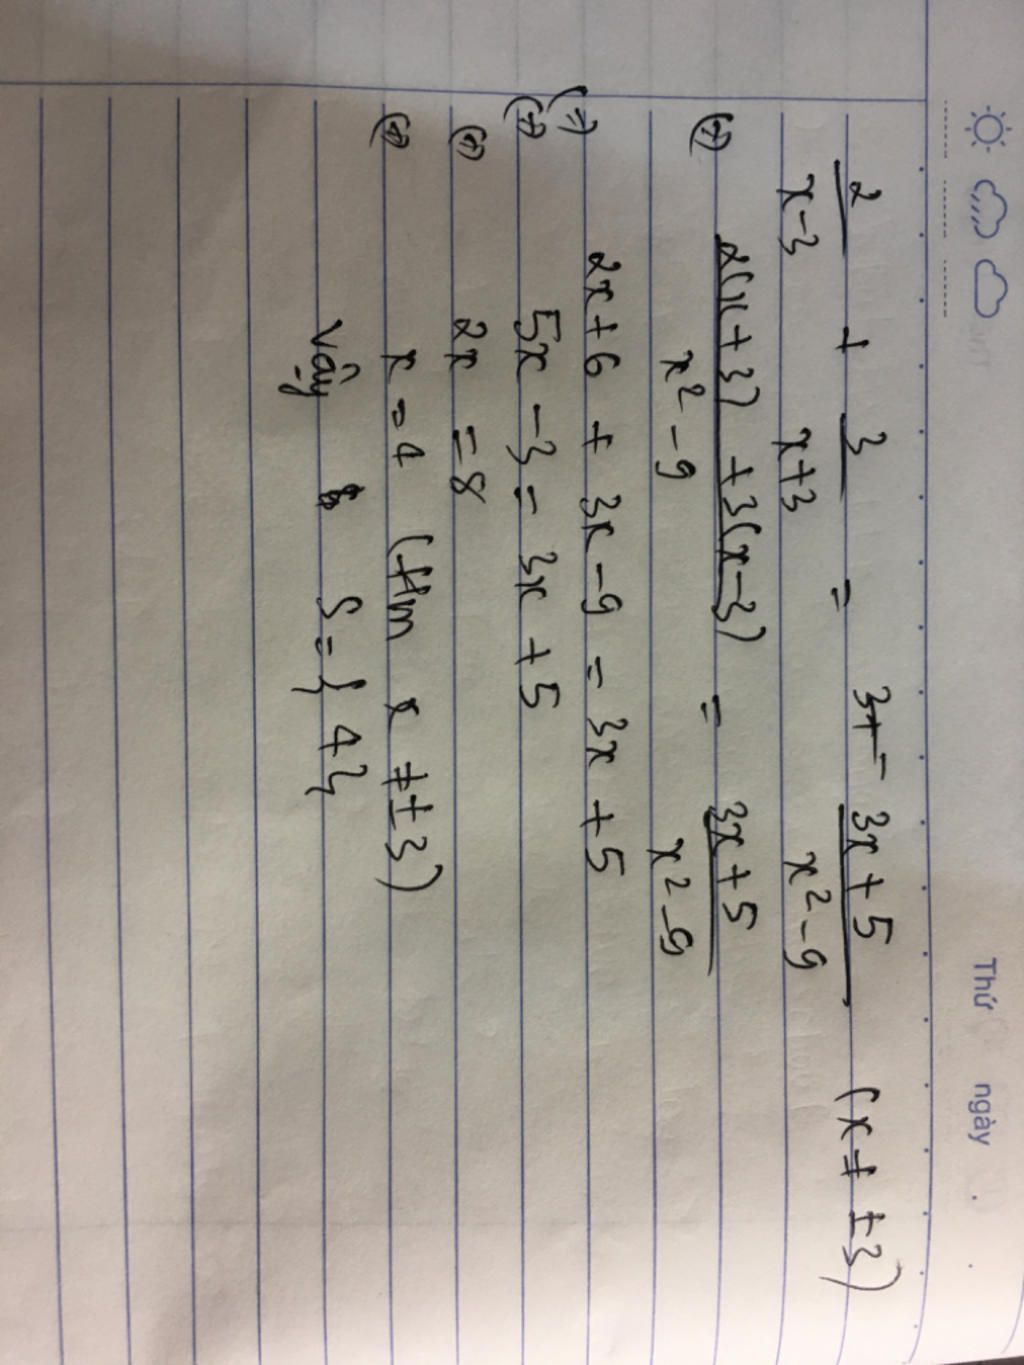 Thứ ngày
2/(x-3) + 3/(x+3) = (3x+5)/(x²-9) (x ≠ ±3)
(⇔) (2(x+3) + 3(x-3))/(x²-9) = (3x+5)/(x²-9)
(⇒) 2x+6 + 3x-9 = 3x+5
(⇔) 5x-3 = 3x+5
(⇔) 2x = 8
(⇔) x = 4 (tm x ≠ ±3)
Vậy S = {4}